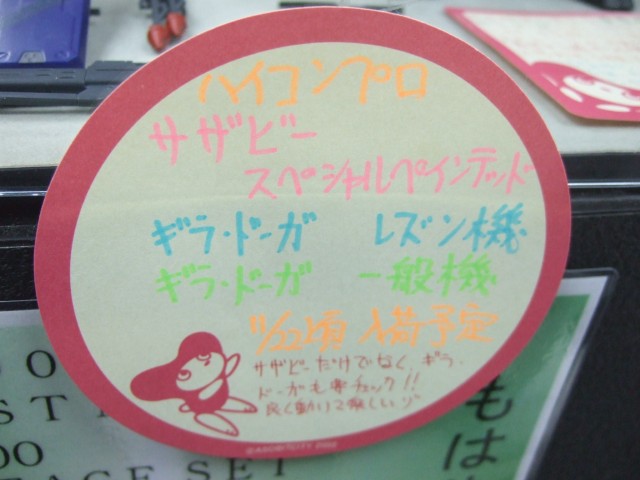 ハイコンプロ
サザビー
スペシャルペインテッド
ギラ・ドーガ レズン機
ギラ・ドーガ 一般機
11/22頃 入荷予定
サザビーだけでなく、ギラ・
ドーガも要チェック!!
良く動いて楽しいゾ
もは
OO
GE SET